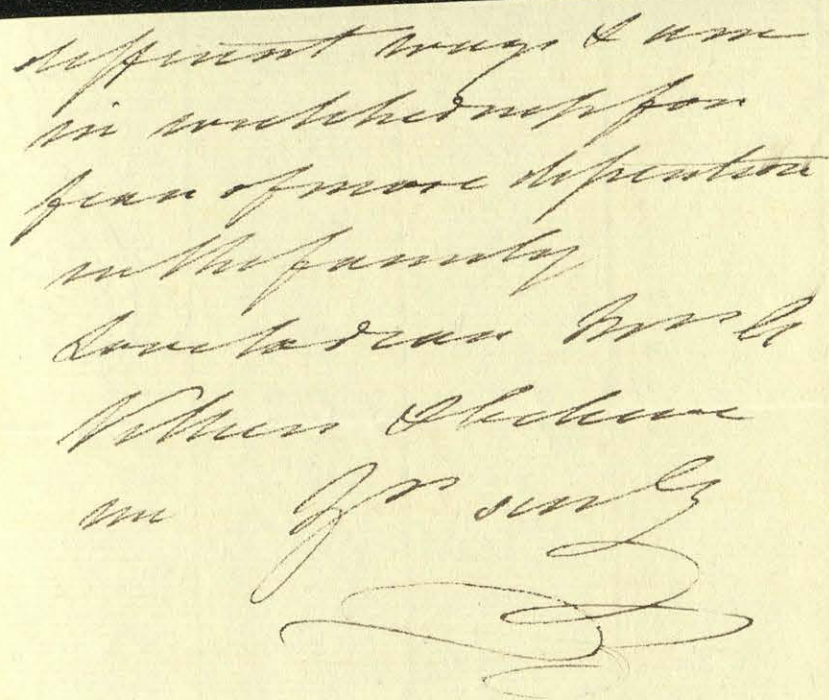 different ways & am
in wretchedness for
fear of more dissention
in the family
Love to dear Mrs G
Villiers & believe
me Yrs sincly